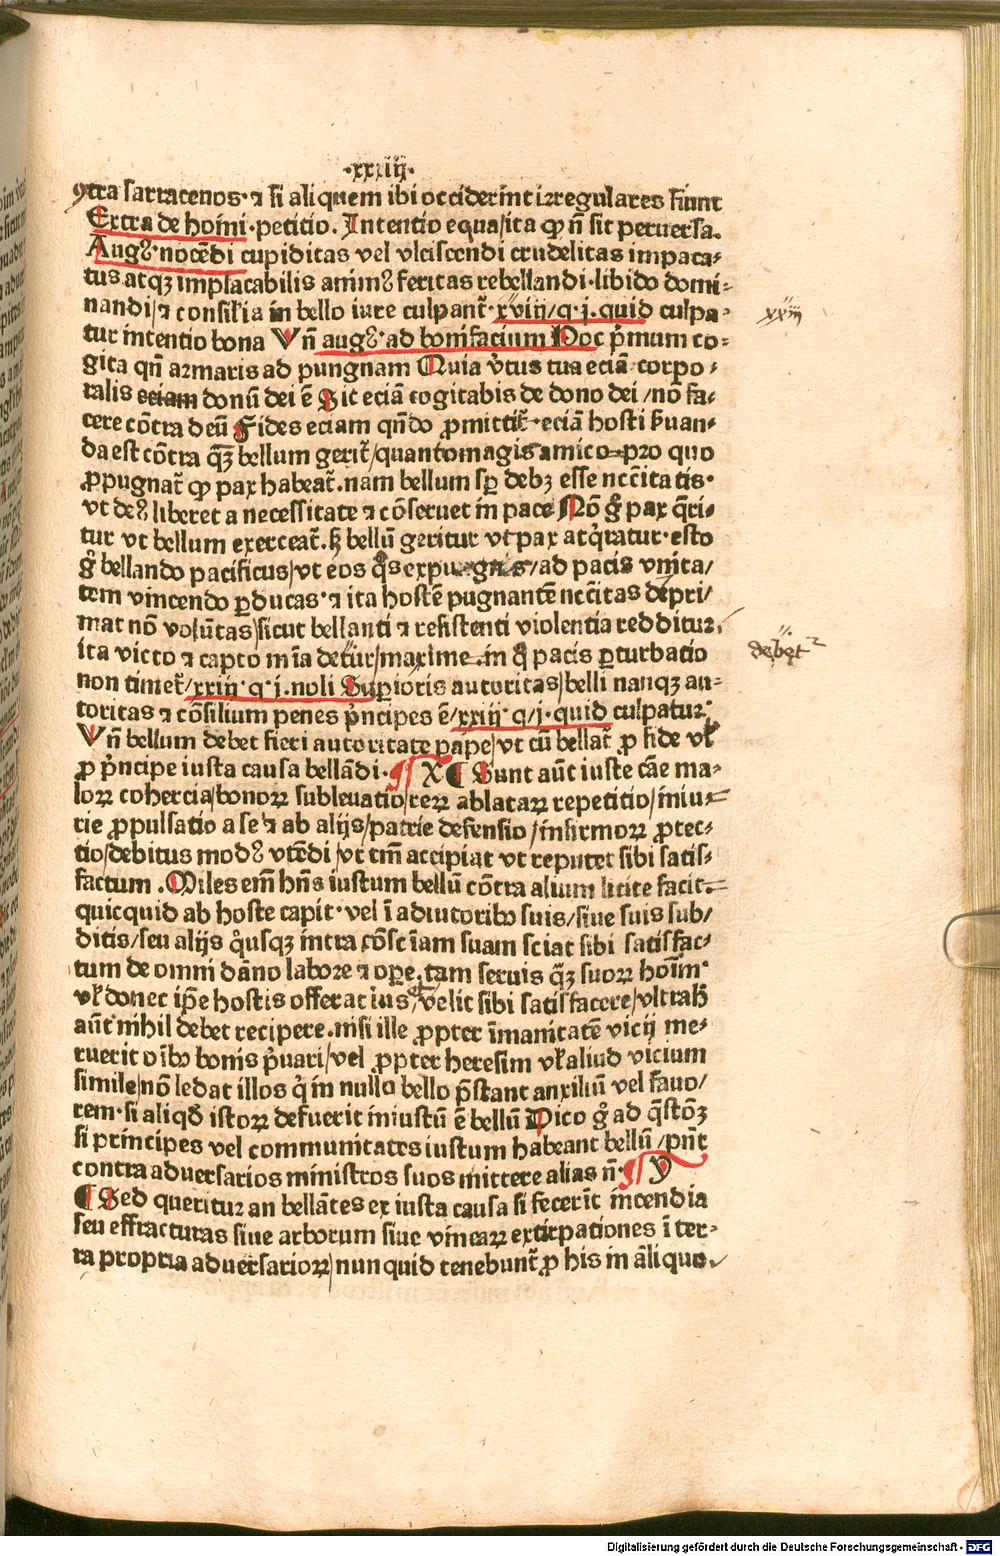 ·xxiij·
ꝯtra sarracenos· ⁊ si aliquem ibi occiderint irregulares siunt
Extra de homi·petitio. Intentio equa/ita ꝙ nͦ sit peruersa.
Augꝰ·nocẽdi cupiditas vel vlciscendi crudelitas impaca-
tus atqꝫ implacabilis animꝰ feritas rebellandi·libido domi-
nandi/⁊ consilia in bello iure culpant᷑·xviij/q·j·quid culpa-
xxiij
tur intentio bona Vñ augꝰ·ad bonifacium Hoc pͥmum co-
gita qñ armaris ad pungnam Quia vͥtus tua eciã corpo-
ralis eciam donũ dei ẽ Sic eciã cogitabis de dono dei /nõ fa-
cere cõtra deũ Fides eciam qñdo ꝓmittit᷑·eciã hosti ẜuan-
da est cõtra quẽ bellum gerit᷑/quantomagis amico pro quo
ꝓpugnat᷑ ꝙ pax habeat᷑.nam bellum sꝑ debꝫ esse necĩtatis·
vt deꝰ liberet a necessitate ⁊ cõseruet in pace Nõ gͦ pax q̃ri-
tur vt bellum exerceat᷑.ẜ bellũ geritur vt pax atqͥratur·esto
gͦ bellando pacificus/vt eos qͦs expugnas/ad pacis vnita/
tem vincendo ꝑducas·⁊ ita hostẽ pugnantẽ necĩtas depri/
mat nõ volũtas/sicut bellanti ⁊ resistenti violentia redditur,
ita victo ⁊ capto mĩa detur/maxime in qͦ pacis ꝑturbatio
debet²
non timet᷑/xxiij·q·j·noli Supioris autoritas/belli nanqꝫ au-
toritas ⁊ cõsilium penes pͥncipes ẽ/xxiij·q/j·quid culpatur·
Vñ bellum debet fieri autoritate pape/vt cũ bellat᷑ ꝓ fide vł
ꝓ pͥncipe iusta causa bellãdi· X ¶ Sunt aũt iuste cãe ma-
loꝝ cohercia/bonoꝝ subleuatio/reꝝ ablataꝝ repetitio/iniu-
rie ꝓpulsatio a se ⁊ ab alijs/patrie defensio/infirmoꝝ ꝓtec-
tio/debitus modꝰ vtẽdi/vt tm̃ accipiat vt reputet sibi satis-
factum .Miles em̃ hñs iustum bellũ cõtra alium licite facit
quicquid ab hoste capit·vel ĩ adiutoribꝰ suis/siue suis sub/
ditis/seu alijs qͥusqꝫ intra cõscĩam suam sciat sibi satisfac-
tum de omni dãno labore ⁊ oꝑe.tam seruis q̃ꝫ suoꝝ hoĩm·
vł donec ip̃e hostis offerat ius/⁊ velit sibi satisfacere/vltra ẜ
aũt nihil debet recipere.nisi ille ꝓpter ĩmanitatẽ vicij me-
ruerit oĩbꝰ bonis pͥuari/vel ꝓpter heresim vł aliud vicium
simile/nõ ledat illos qͥ in nullo bello p̃stant anxiliũ vel fauo/
rem·si aliqͦd istoꝝ defuerit iniustũ ẽ bellũ Dico gͦ ad q̃stõꝫ
si principes vel communitates iustum habeant bellũ/pn̄t
contra aduersarios ministros suos mittere alias ñ· y
¶ Sed queritur an bellãtes ex iusta causa si fecerĩt incendia
seu effracturas siue arborum siue vineaꝝ extirpationes ĩ ter-
ra propria aduersarioꝝ/nunquid tenebunt᷑ ꝓ his in aliquo
Digitalisierung gefördert durch die Deutsche Forschungsgemeinschaft - DFG